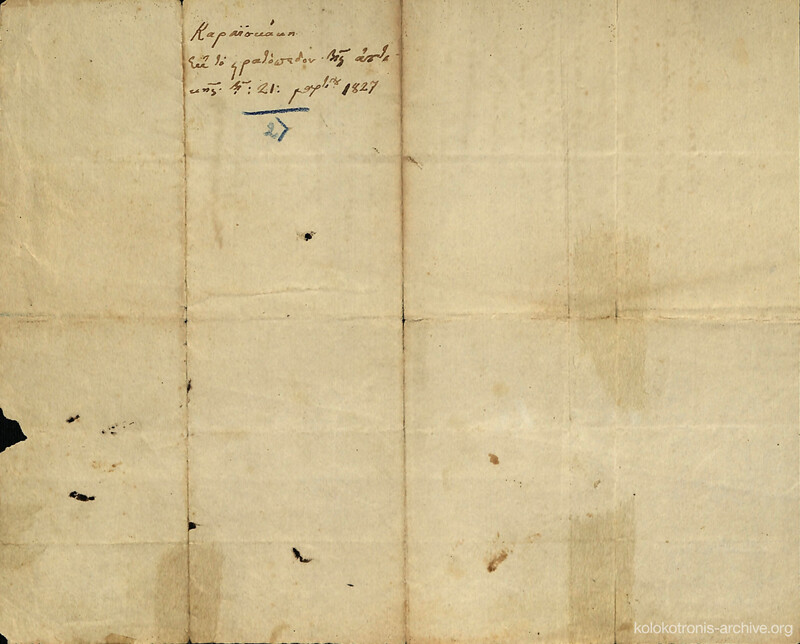 Καραϊσκάκη
Εκ τὸ στρατόπεδον τῆς ἀττι
κῆς τῇ: 21: μαρτίου 1827
27
kolokotronis-archive.org